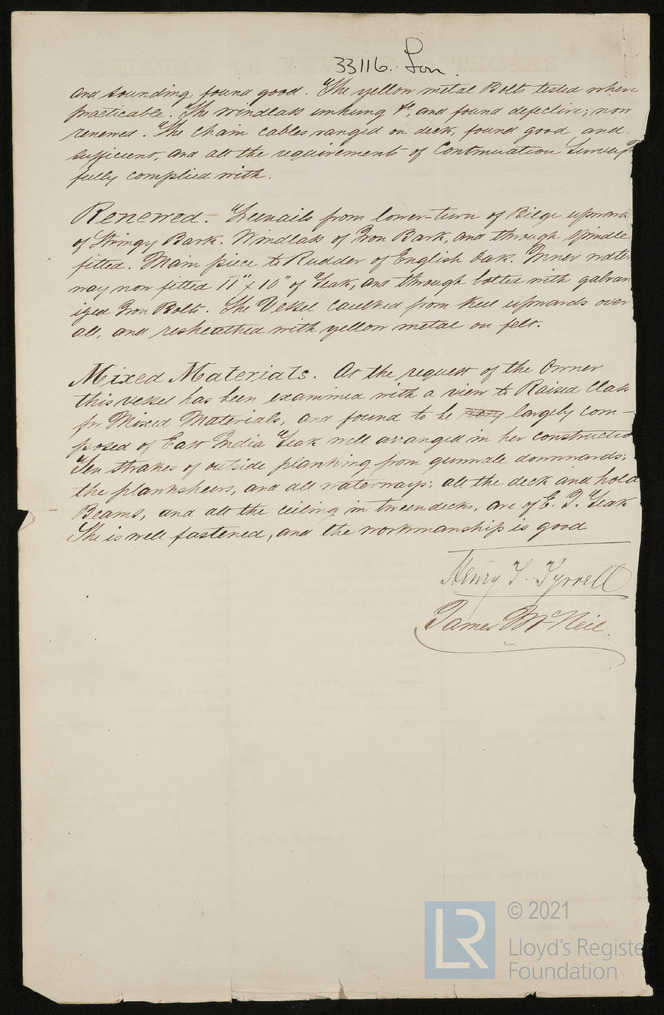 33116. Lon.
and sounding found good. The yellow metal Bolts tested where
practicable. The windlass unhung &c, and found defective; now
renewed. The Chain cables ranged on deck, found good and
sufficient, and all the requirements of Continuation Survey
fully complied with.
Renewed.- Treenails from lower-turn of Bilge upward
of Stringy Bark. Windlass of Iron Bark, and through spindle
fitted. Main piece to Rudder of English Oak. Inner water
way now fitted 11" x 10" of Teak, and through bolted with galvan
ized Iron Bolts. The Vessel caulked from keel upwards over
all, and resheathed with yellow metal on felt.
Mixed Materials. At the request of the Owner
this vessel has been examined with a view to Raised Class
for Mixed Materials, and found to be largely com-
posed of East India Teak well arranged in her construction
Ten strakes of outside planking from gunwale downwards;
the planksheers, and all waterways; all the deck and hold
Beams, and all the ceiling in tweendecks, are of E. I. Teak
She is well fastened, and the workmanship is good
Henry T. Tyrrell
James McNeil.
LR
© 2021
Lloyd's Register
Foundation